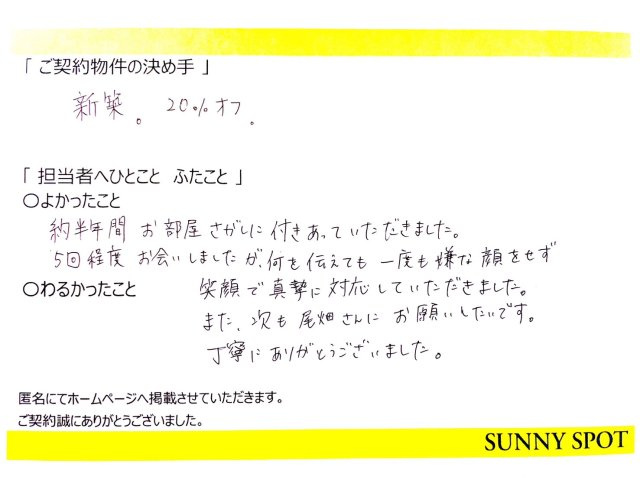 「 ご契約物件の決め手 」
新築。 20%オフ。
「 担当者へひとこと ふたこと 」
○よかったこと
約半年間 お部屋さがしに付きあっていただきました。
5回程度 お会いしましたが、何を伝えても 一度も嫌な顔をせず
○わるかったこと 笑顔で真摯に対応していただきました。
また、次も 尾畑さんに お願いしたいです。
丁寧にありがとうございました。
匿名にてホームページへ掲載させていただきます。
ご契約誠にありがとうございました。
SUNNY SPOT